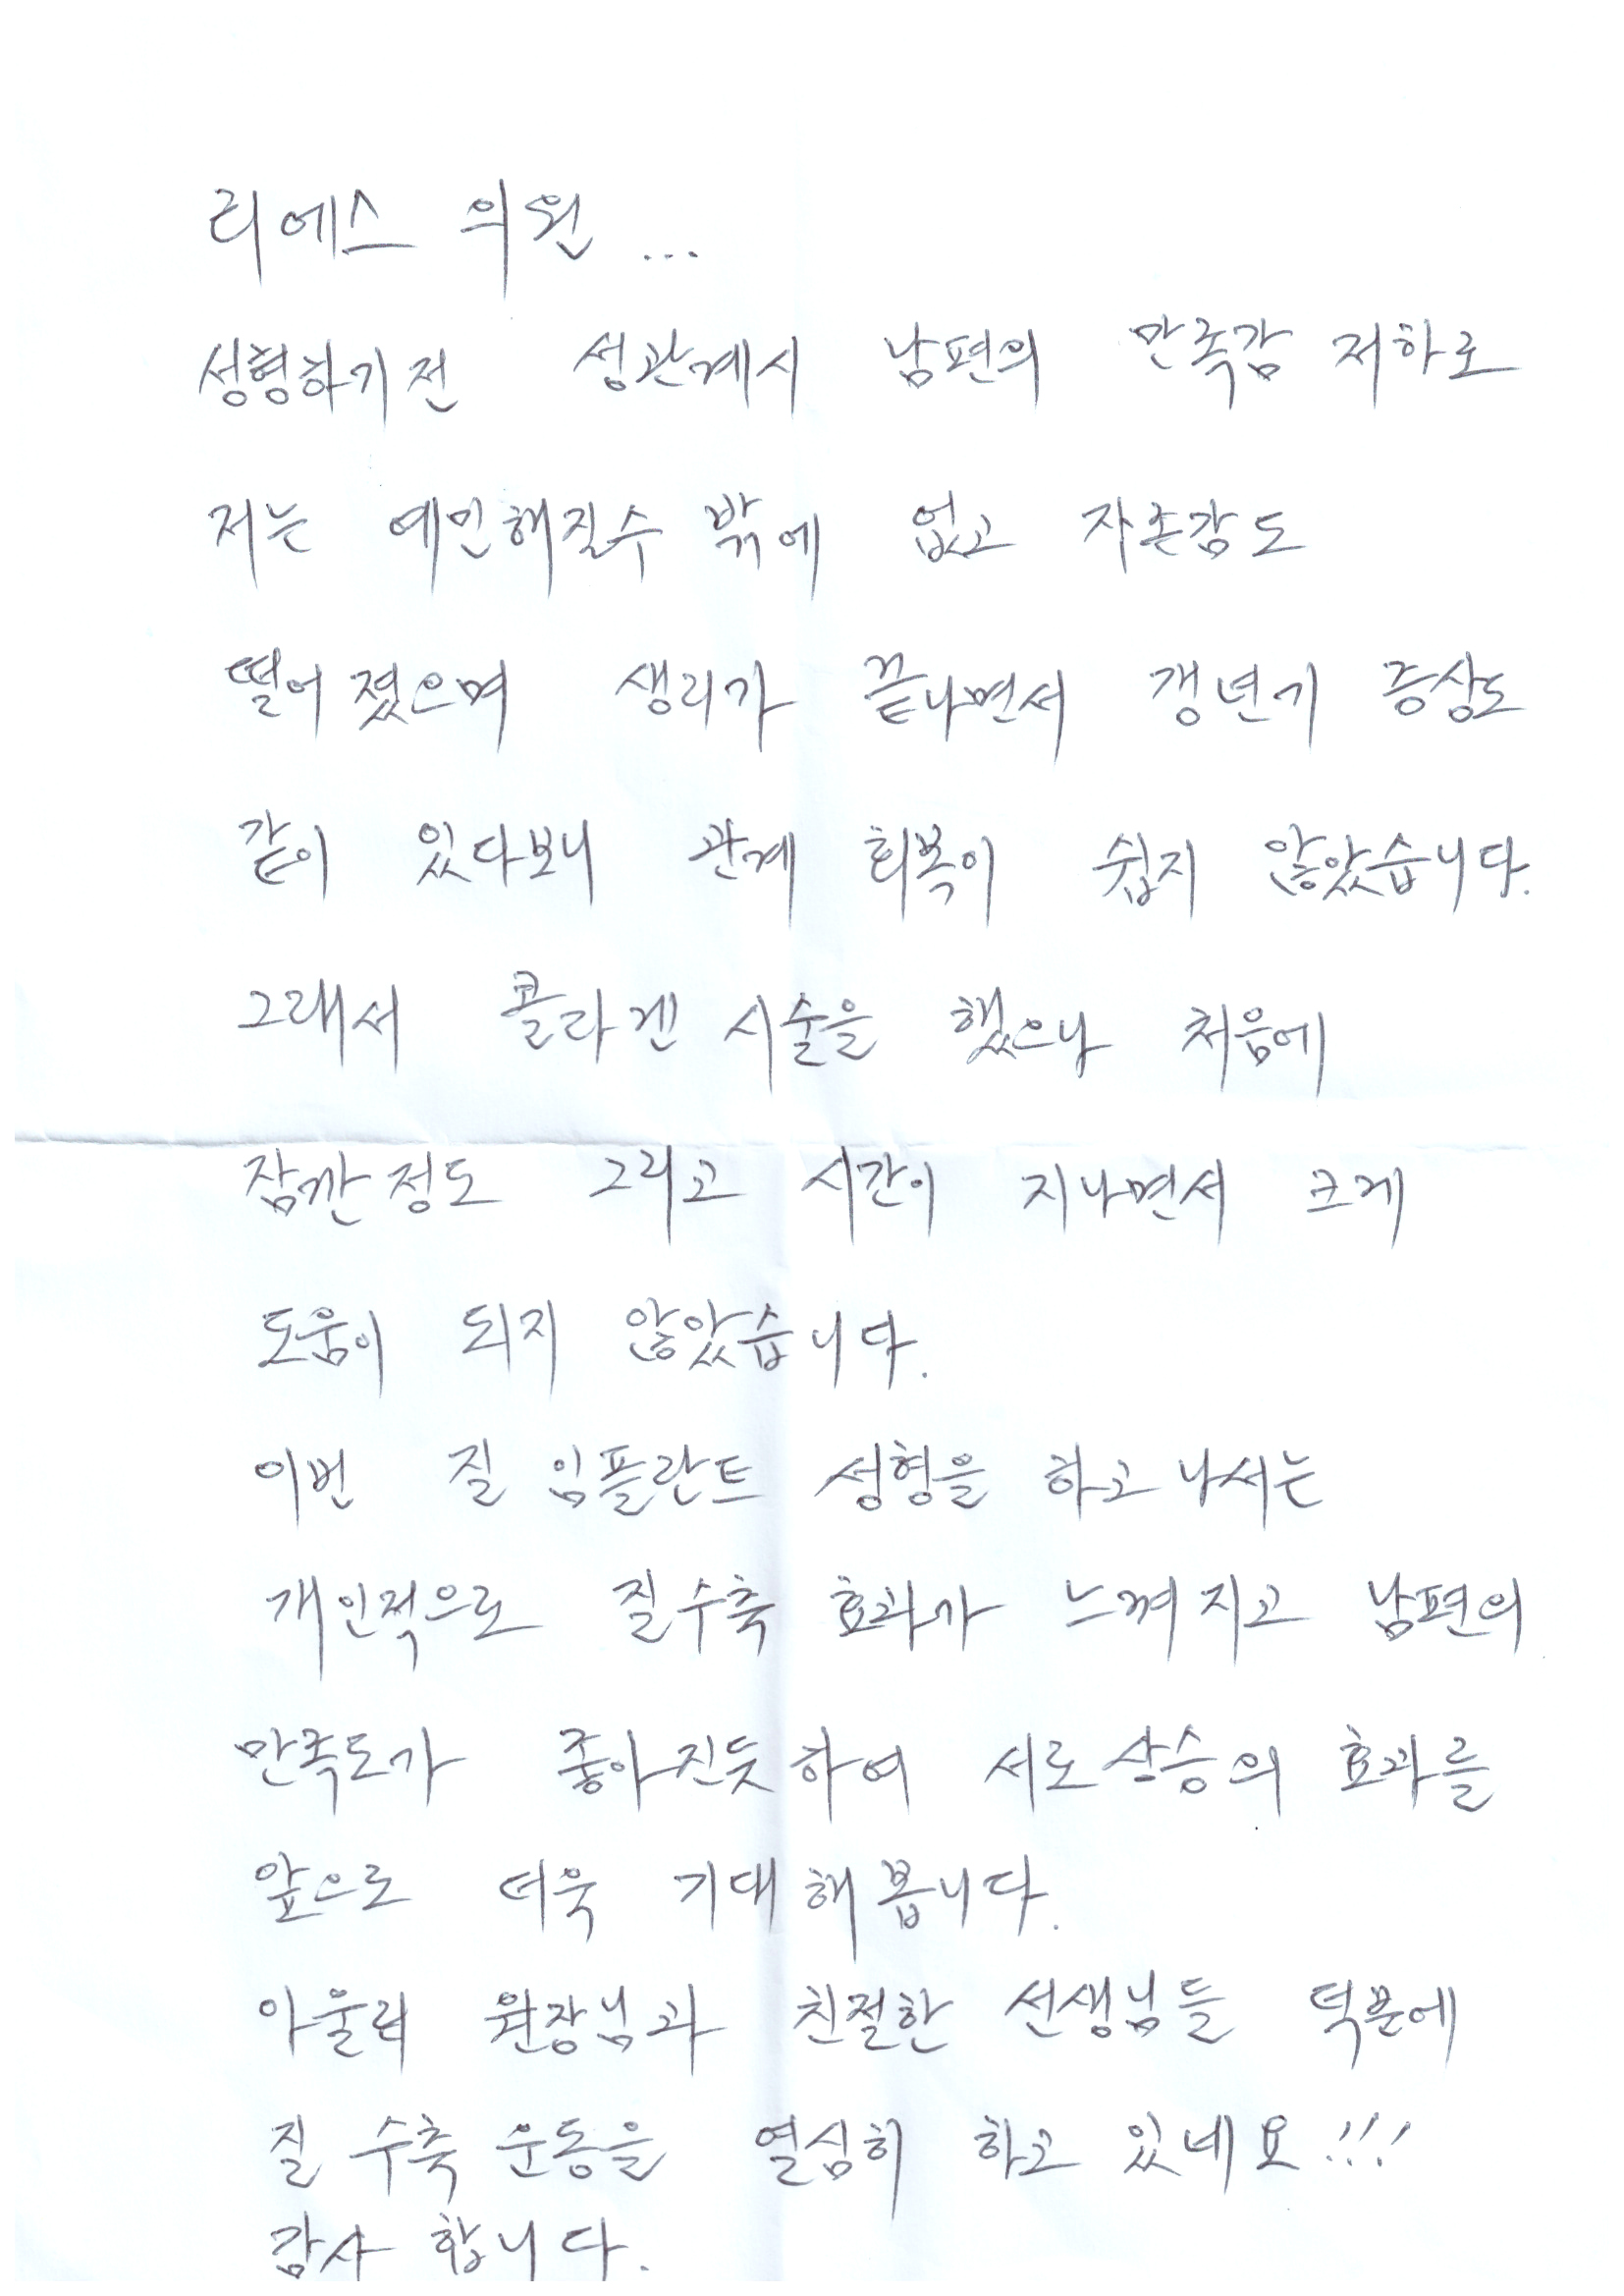 리에스 의원 ...
성형하기전 성관계시 남편의 만족감 저하로
저는 예민해질수 밖에 없고 자존감도
떨어 졌으며 생리가 끝나면서 갱년기 증상도
같이 있다보니 관계 회복이 쉽지 않았습니다.
그래서 콜라겐 시술을 했으나 처음에
잠깐정도 그리고 시간이 지나면서 크게
도움이 되지 않았습니다.
이번 질 임플란트 성형을 하고나서는
개인적으로 질수축 효과가 느껴지고 남편의
만족도가 좋아진듯하여 서로상승의 효과를
앞으로 더욱 기대해봅니다.
아울러 원장님과 친절한 선생님들 덕분에
질 수축 운동을 열심히 하고 있네요!!!
감사 합니다.